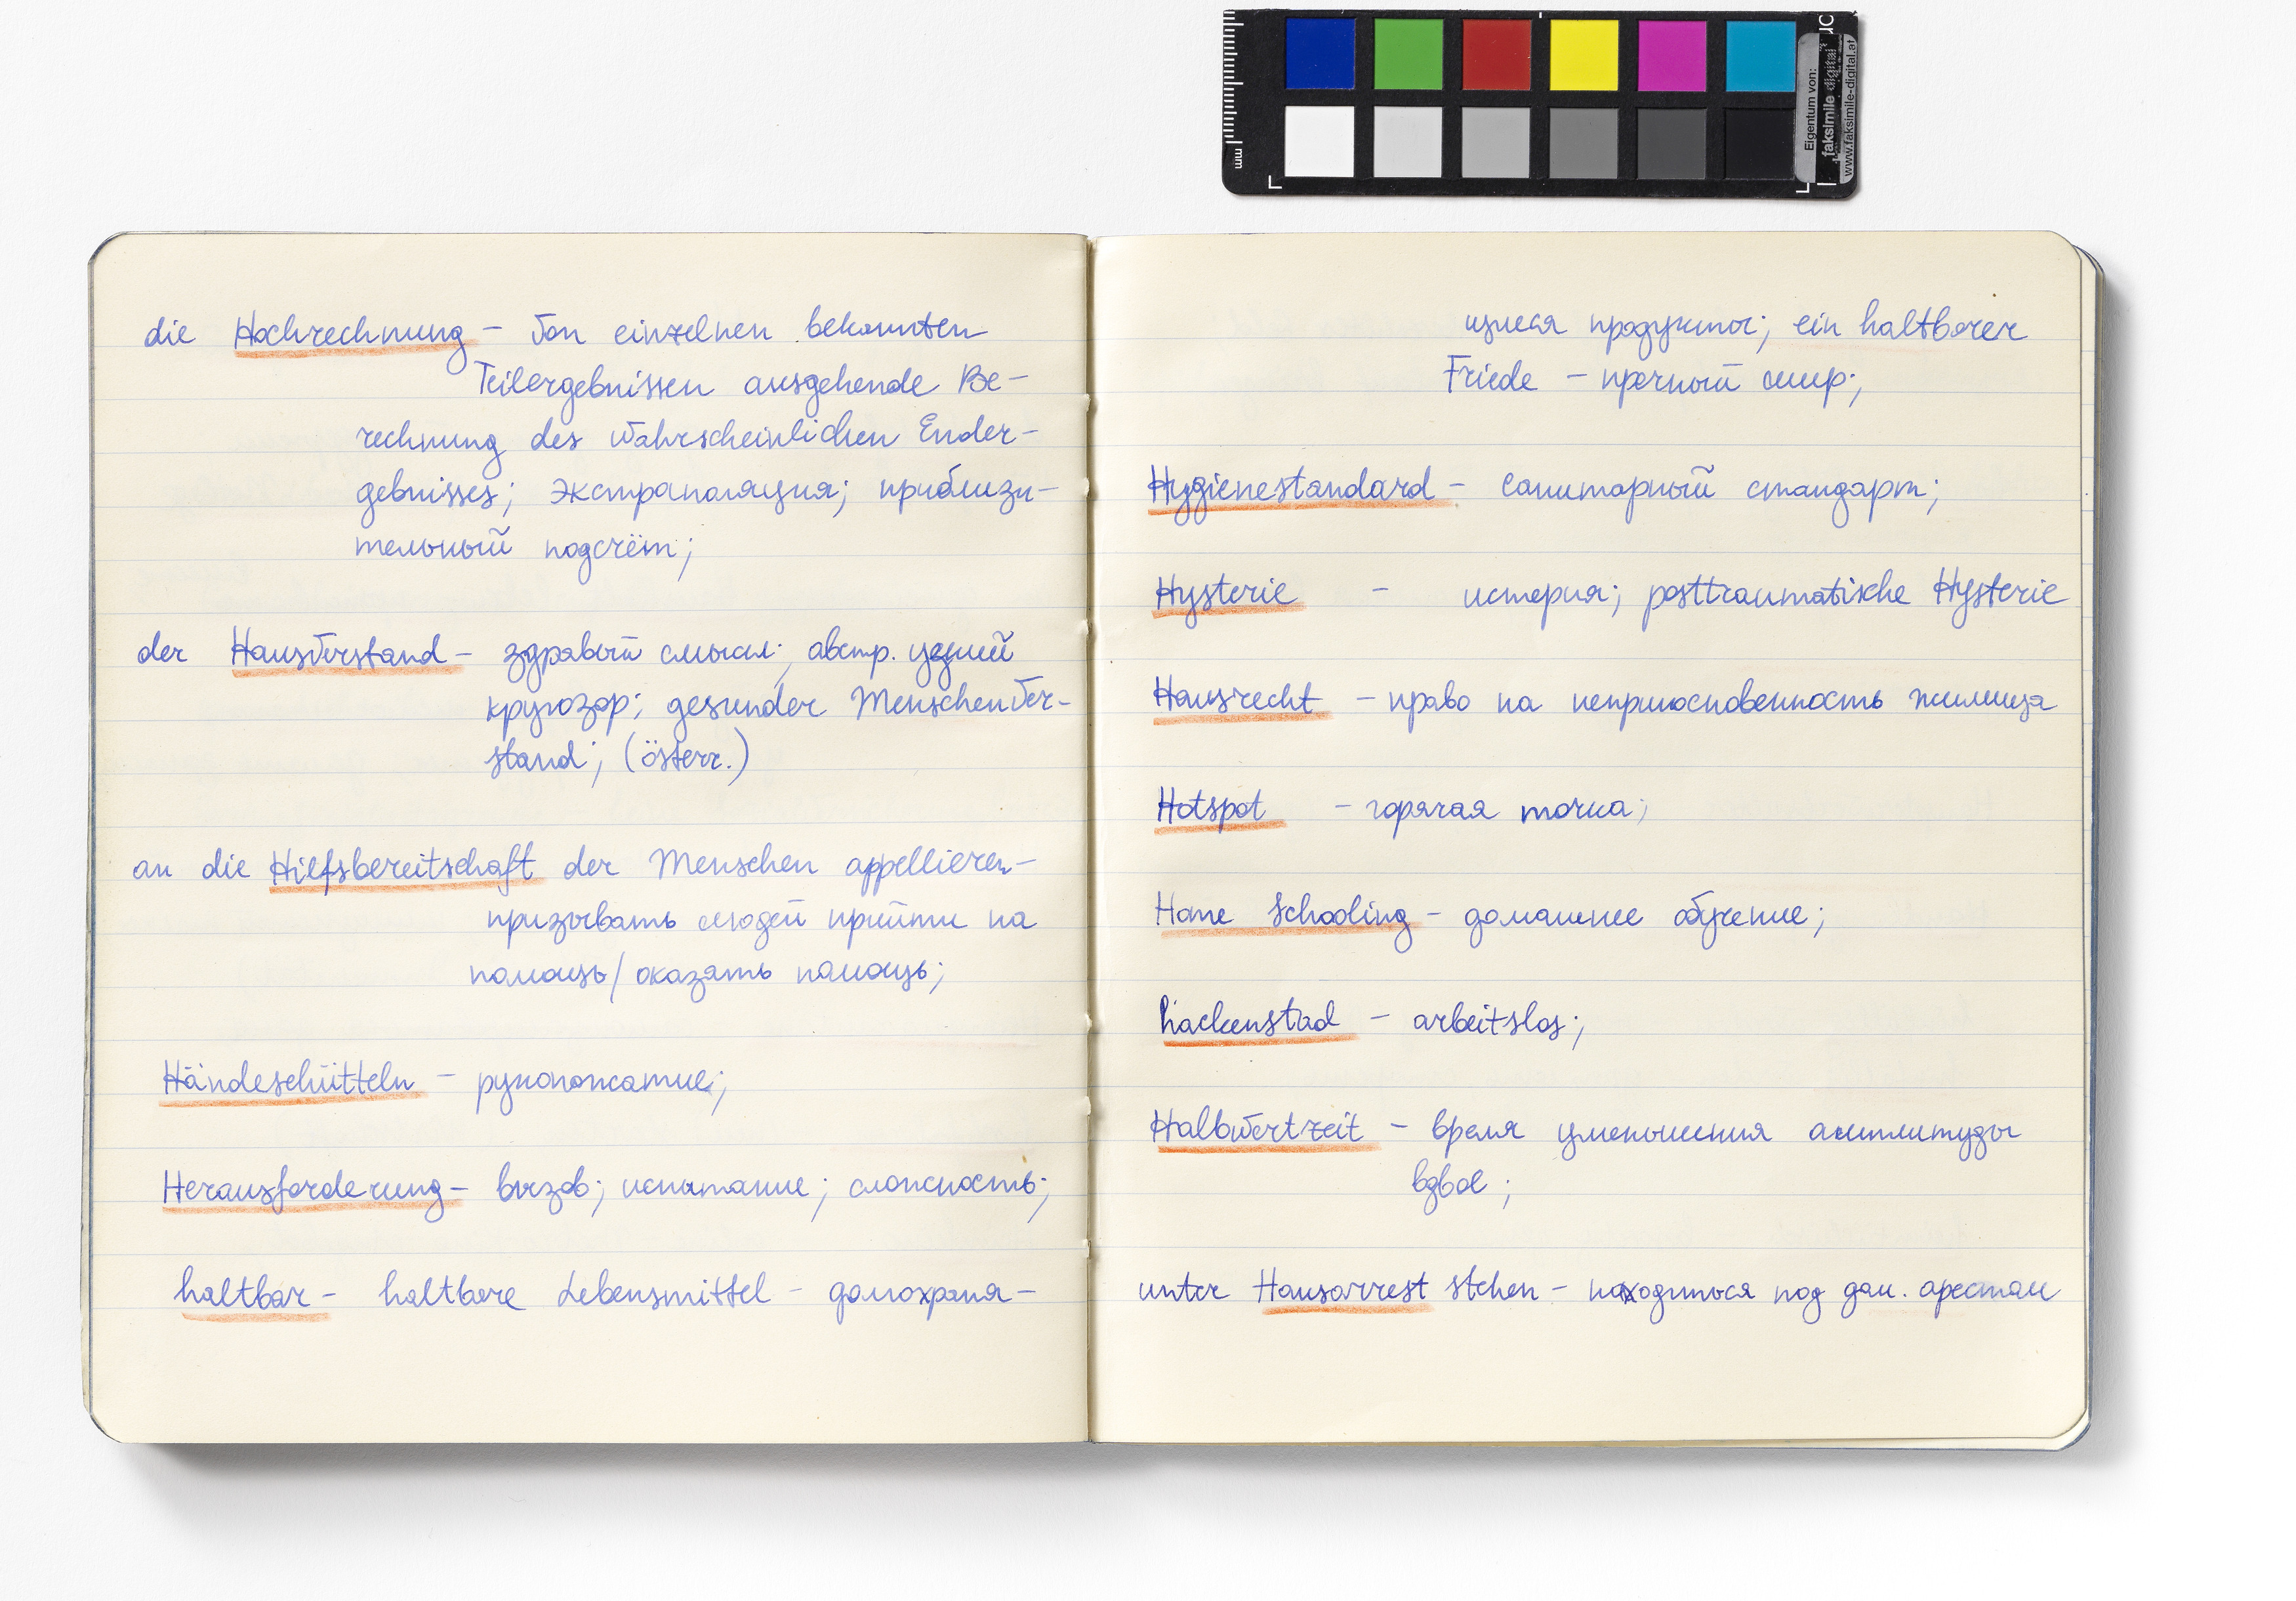 die Hochrechnung – von einzelnen bekannten
Teilergebnissen ausgehende Be-
rechnung des wahrscheinlichen Ender-
gebnisses; экстраполяция; приблизи-
тельный подсчёт;
der Hausverstand – здравый смысл; австр. узкий
кругозор; gesunder Menschenver-
stand; (österr.)
an die Hilfsbereitschaft der Menschen appellieren –
призывать людей прийти на
помощь/оказать помощь;
Händeschütteln – рукопожатие;
Herausforderung – вызов; испытание; сложность;
haltbar – haltbare Lebensmittel – долгохраня-
щиеся продукты; ein haltbarer
Friede – прочный мир;
Hygienestandard – санитарный стандарт;
Hysterie – истерия; posttraumatische Hysterie
Hausrecht – право на неприкосновенность жилища
Hotspot – горячая точка;
Home Schooling – домашнее обучение;
hackenstad – arbeitslos;
Halbwertzeit – время уменьшения амплитуды
вдвое;
unter Hausarrest stehen – находиться под дом. арестом
mm
Eigentum von:
faksimile digital
www.faksimile-digital.at